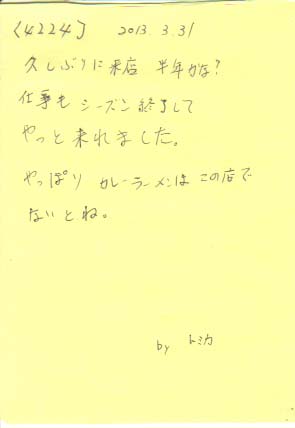 〈4224〕 2013.3.31
久しぶりに来店 半年かな?
仕事もシーズン終了して
やっと来れました。
やっぱり カレーラーメンは この店で
ないとね。
by トミカ